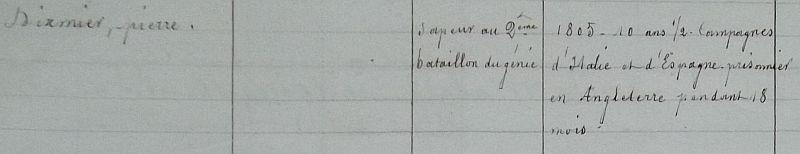 Dixmier, pierre.
Sapeur au 2ème
bataillon du génie
1805 - 10 ans 1/2. Campagnes
d'Italie et d'Espagne. prisonnier
en Angleterre pendant 18
mois.